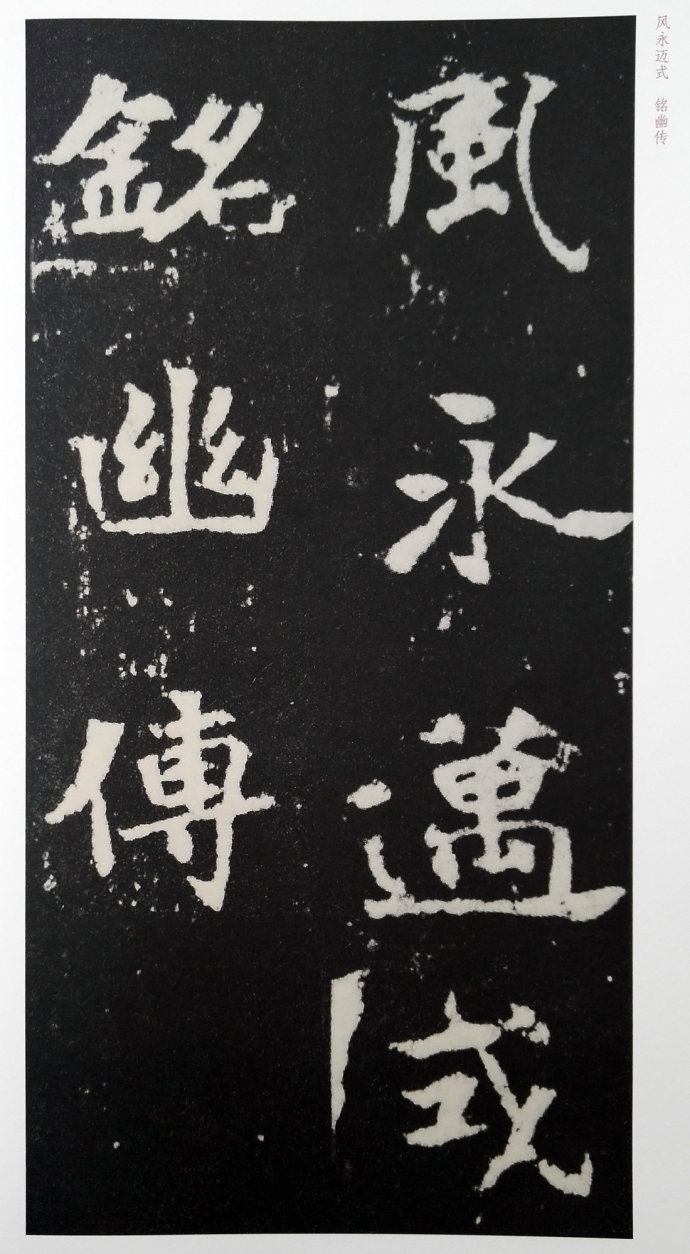 风永迈式 铭幽传
風永邁式
銘幽傳